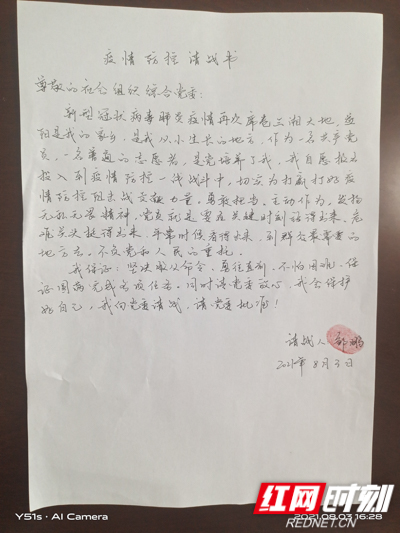 疫情防控请战书
尊敬的社会组织综合党委：
新型冠状病毒肺炎疫情再次席卷三湘大地，益
阳是我的家乡，是我从小生长的地方，作为一名共产党
员，一名普通的志愿者，是党培养了我，我自愿报名
投入到疫情防控一线战斗中，切实为打赢打好疫
情防控阻击战贡献力量，勇敢担当，主动作为，发扬
无私无畏精神，党员就是要在关键时刻站得出来，危
难关头挺得出来，平常时候看得出来，到群众最需要的
地方去，不负党和人民的重托。
我保证：坚决服从命令，勇往直前，不怕困难，保
证圆满完成各项任务。同时请党委放心，我会保护
好自己，我向党委请战，请党委批准！
请战人
2021年8月3日
Y51s · AI Camera
2021.08.03 16:28
红网时刻
REDNET.CN